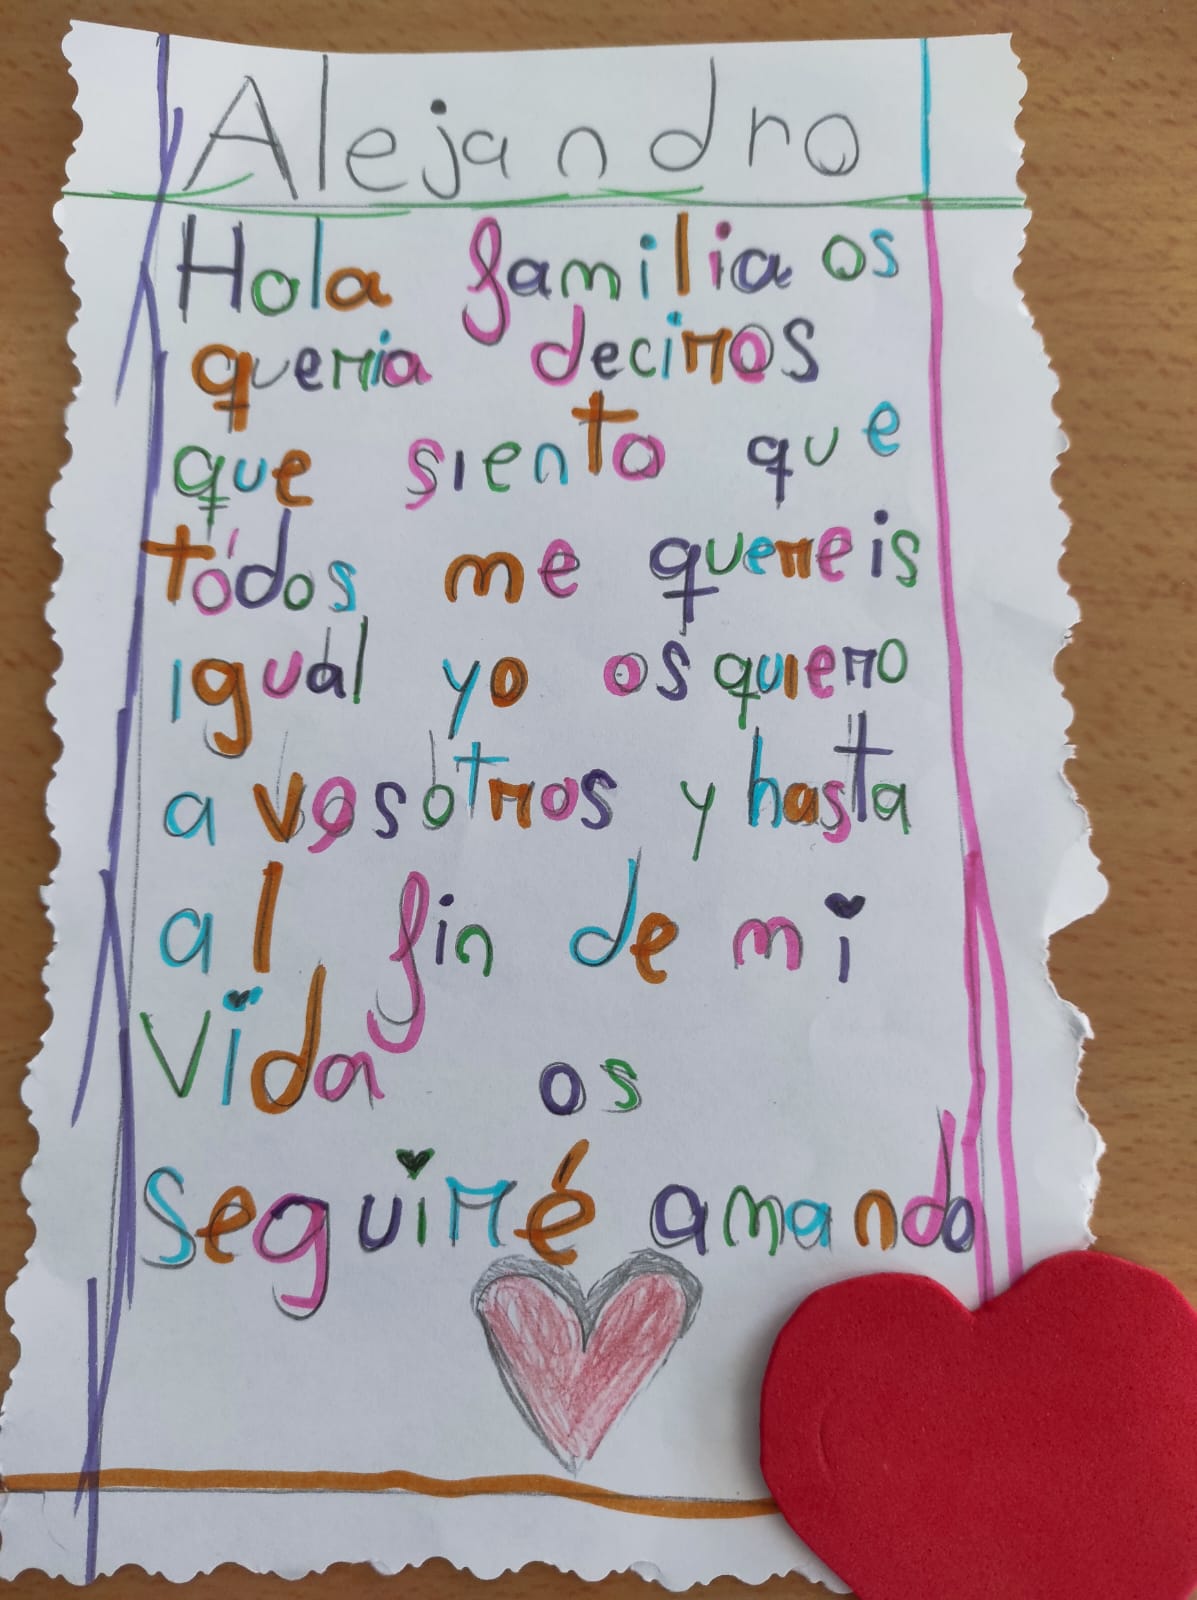 Alejandro
Hola familia os
queria deciros
que siento que
todos me quereis
igual yo os quiero
a vosotros y hasta
al fin de mi
vida os
seguiré amando